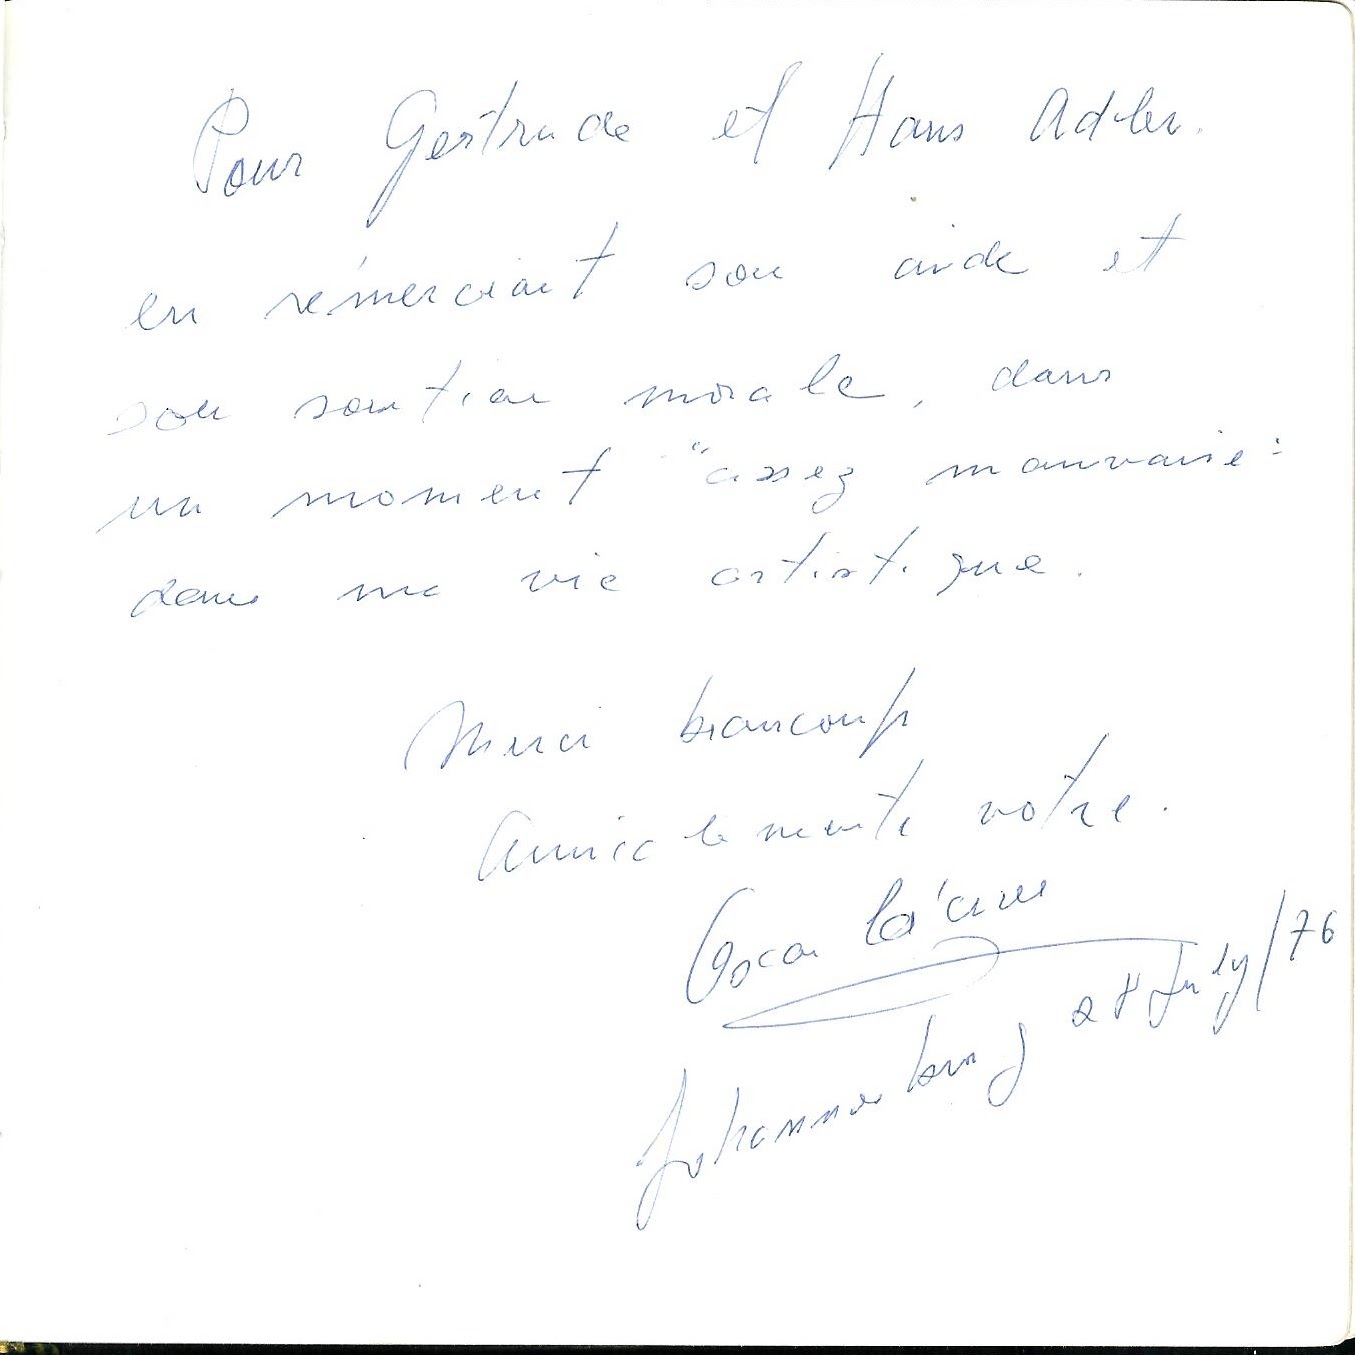 Pour Gertrude et Hans Adler.
en rémerciant son aide et
son soutien morale, dans
un moment "assez mauvaise"
dans ma vie artistique.
Merci beaucoup
Amicalemente votre.
Oscar Cáceres
Johannesburg 28 July/76